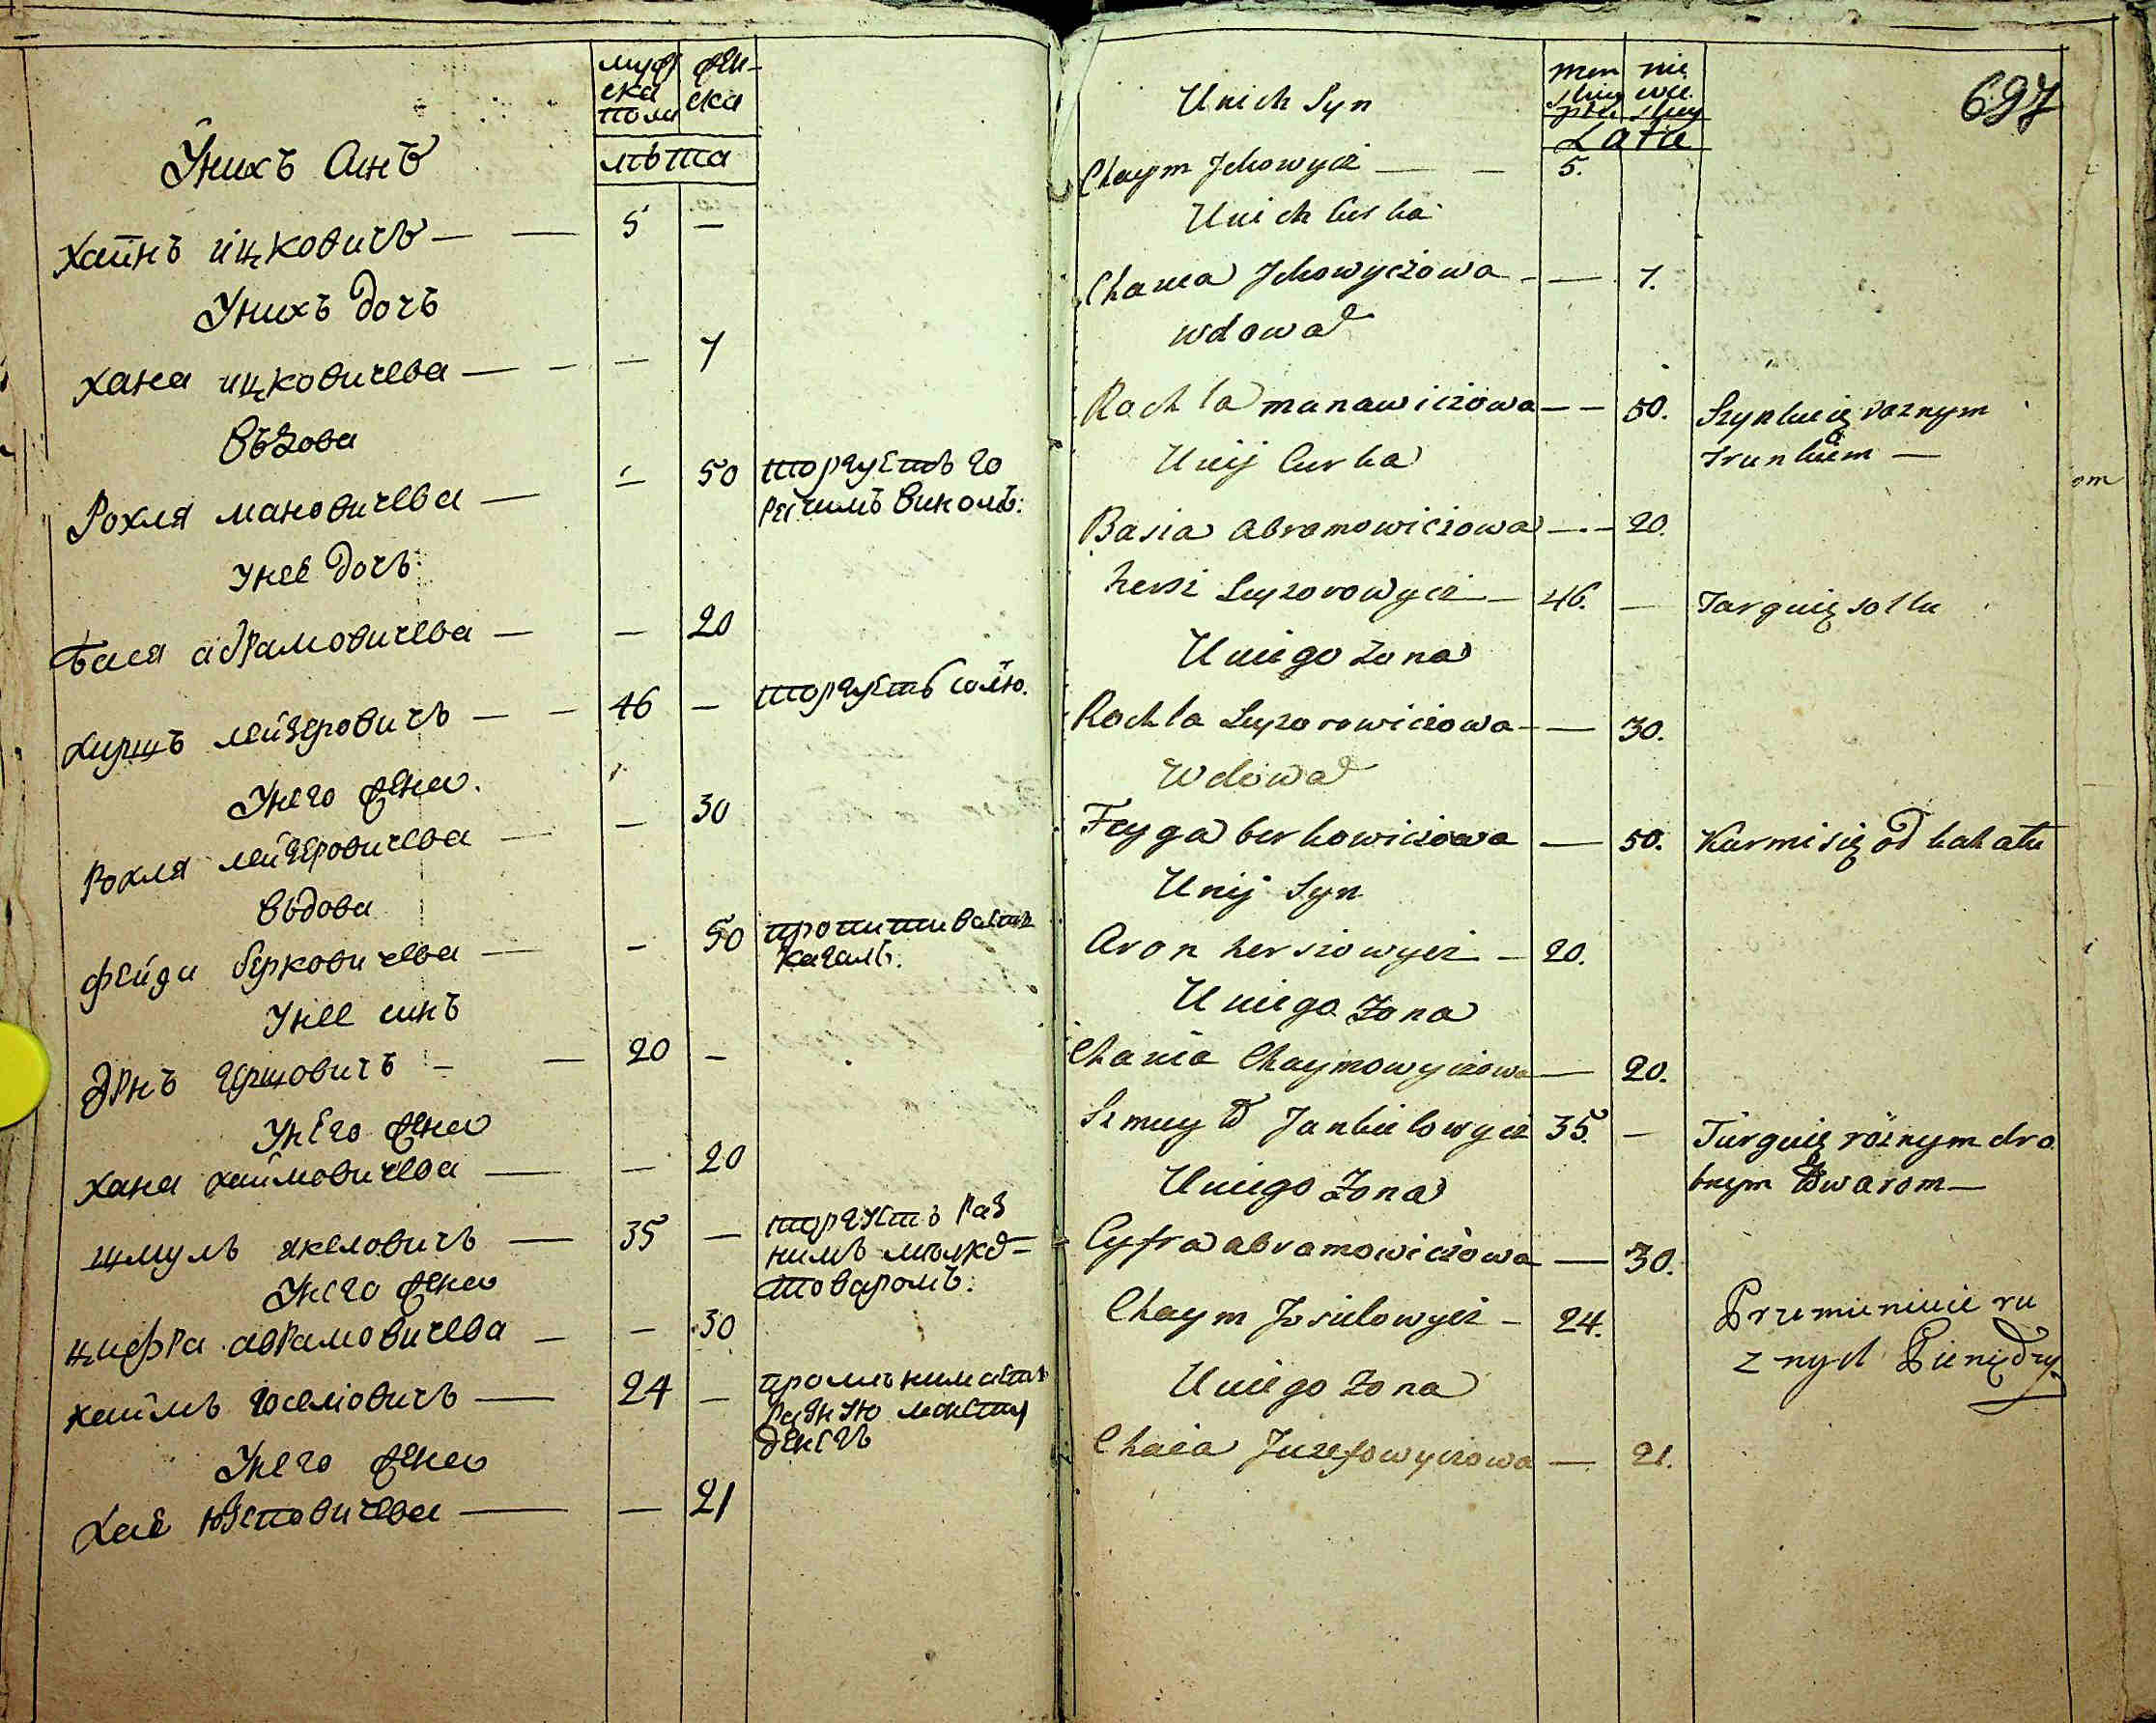 муж
ска
пола
жен
ска
лѣта
Унихъ синъ
Хаимъ ицковичъ — — 5 —
Унихъ дочъ
Хана ицковичева — - — 7
Въдова
Рохля мановичева — — 50 торгуетъ го
рячимъ виномъ:
Унее дочъ
Бася абрамовичева — — 20
Хиршъ лейзеровичъ — — 46 — торгуетъ солю.
Унего жена.
Рохля лейзеровичева — — 30
Вьдова
Фейга берковичева — — 50 пропитиваетъ
кагалъ.
Унее синъ
Арнъ гершовичъ — — 20 —
Унего жена
Хана хаймовичева — — 20
Шмулъ якеловичъ — 35 — торгуетъ раз
нимъ мѣлкд-
товаромъ:
Унего жена
Цифра аврамовичева — — 30
Хаимъ иоселiовичъ — 24 — промѣнимаетъ
разную монету
денегъ
Унего жена
Хая юзеповичева — — 21
697
men
skiey
płci
nie
wie
skiey
Latu
Unich Syn
Chaym Jckowycz — — 5.
Unich Curka
Chania Jckowyczowa - — 7.
wdowa
Rochla manawiczowa — — 50. Szynkuię roznym
trunkiem —
Unij Curka
Basia abramowiczowa — — 20.
hersz Leyzorowycz — 46. — Targuię solu
Uniego Zona
Rochla Leyzorowiczowa - — 30.
Wdowa
Feyga berkowiczowa — 50. Karmi się od kahału
Unij Syn
Aron herszowycz — 20.
Uniego Zona
Chania Chaymowyczowa — 20.
Szmuyło Jankielowycz 35. — Targuię róznym dro
bnym towarom —
Uniego Zona
Cyfra abramowiczowa — 30.
Chaym Josielowycz — 24. Prumieniuie ru
znych Pieniędzy
Uniego Zona
Chaia Juzefowyczowa — 21.